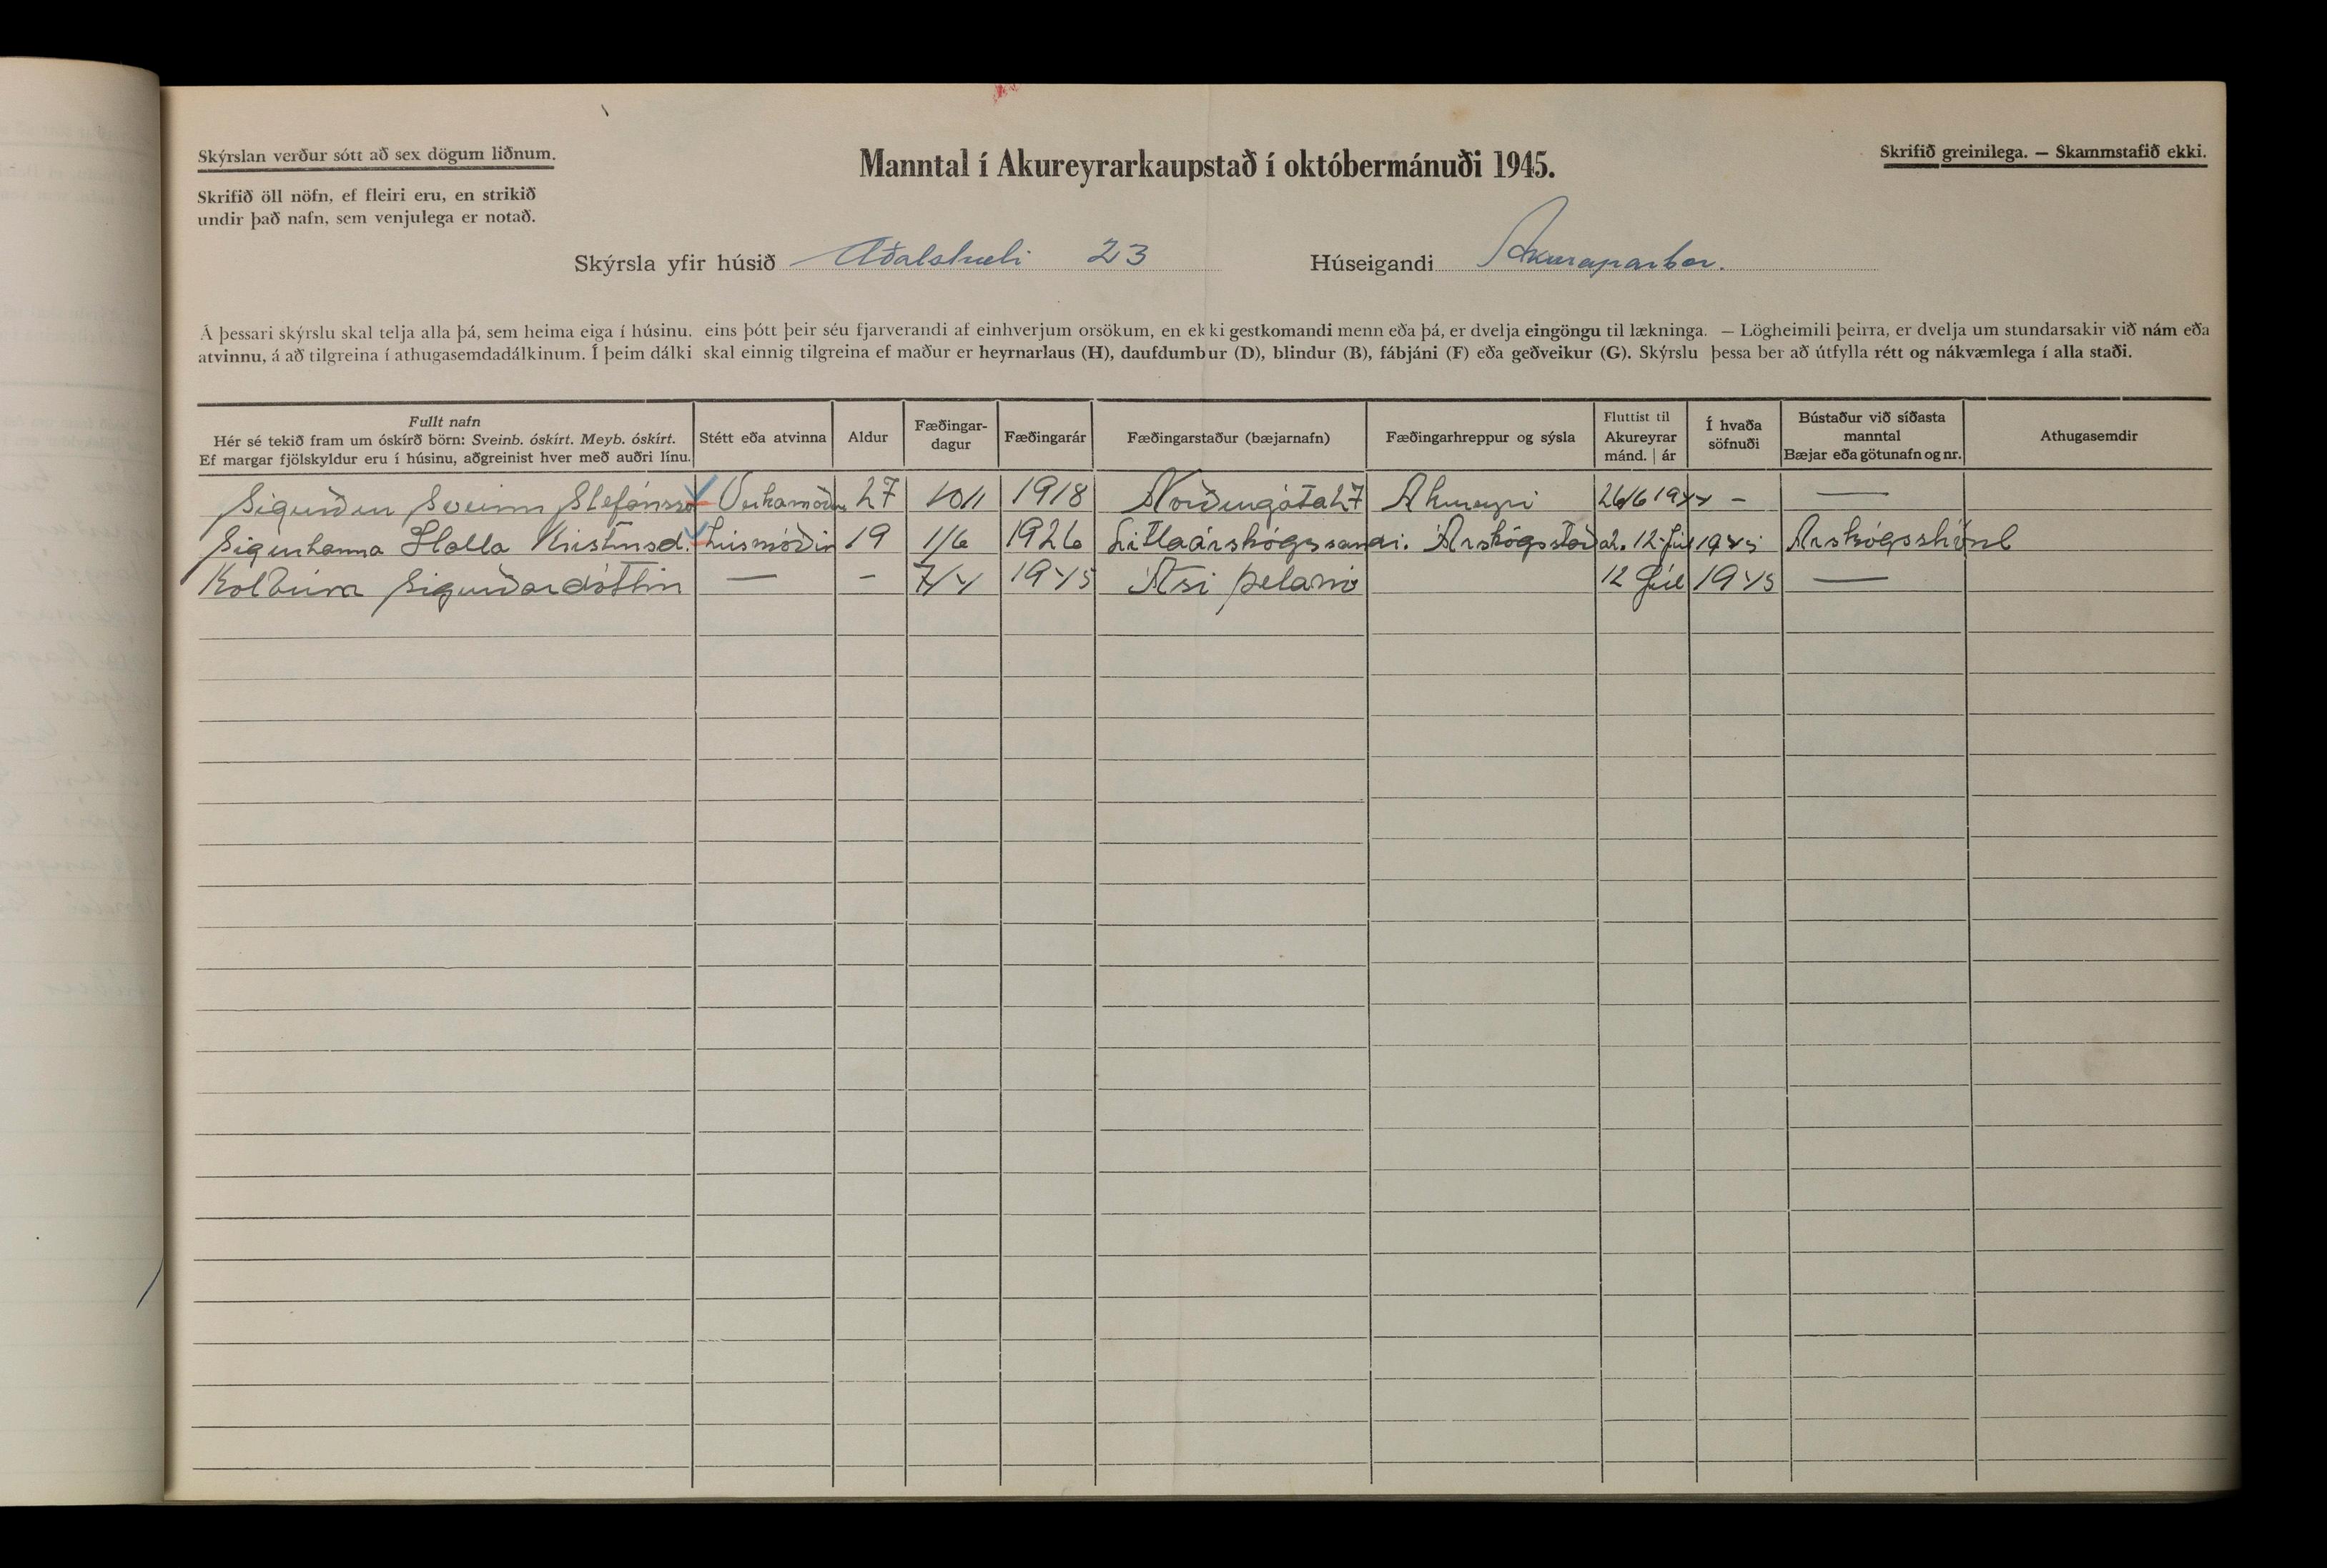 Skýrslan verður sótt að sex dögum liðnum.
Skrifið öll nöfn, ef fleiri eru, en strikið
undir það nafn, sem venjulega er notað.
Manntal í Akureyrarkaupstað í októbermánuði 1945.
Skrifið greinilega. — Skammstafið ekki.
Skýrsla yfir húsið Aðalstræti 23 Húseigandi Akureyrarbær.
Á þessari skýrslu skal telja alla þá, sem heima eiga í húsinu, eins þótt þeir séu fjarverandi af einhverjum orsökum, en ekki gestkomandi menn eða þá, er dvelja eingöngu til lækninga. — Lögheimili þeirra, er dvelja um stundarsakir við nám eða
atvinnu, á að tilgreina í athugasemdadálkinum. Í þeim dálki skal einnig tilgreina ef maður er heyrnarlaus (H), daufdumbur (D), blindur (B), fábjáni (F) eða geðveikur (G). Skýrslu þessa ber að útfylla rétt og nákvæmlega í alla staði.
Fullt nafn
Hér sé tekið fram um óskírð börn: Sveinb. óskírt. Meyb. óskírt.
Ef margar fjölskyldur eru í húsinu, aðgreinist hver með auðri línu.
Stétt eða atvinna
Aldur
Fæðingar-
dagur
Fæðingarár
Fæðingarstaður (bæjarnafn)
Fæðingarhreppur og sýsla
Fluttist til
Akureyrar
mánd. | ár
Í hvaða
söfnuði
Bústaður við síðasta
manntal
Bæjar eða götunafn og nr.
Athugasemdir
Sigurður Sveinn Stefánsson Verkamaður 27 10/11 1918 Norðurgata 27 Akureyri 26/6 1944 - —
Sigurhanna Halla Kristinsd. húsmóðir 19 1/6 1926 Litlaárskógssandi. 12 Júl 1945
Kolbrún Sigurðardóttir — - 7/4 1945 Ási þelamö 12 Júl 1945 —